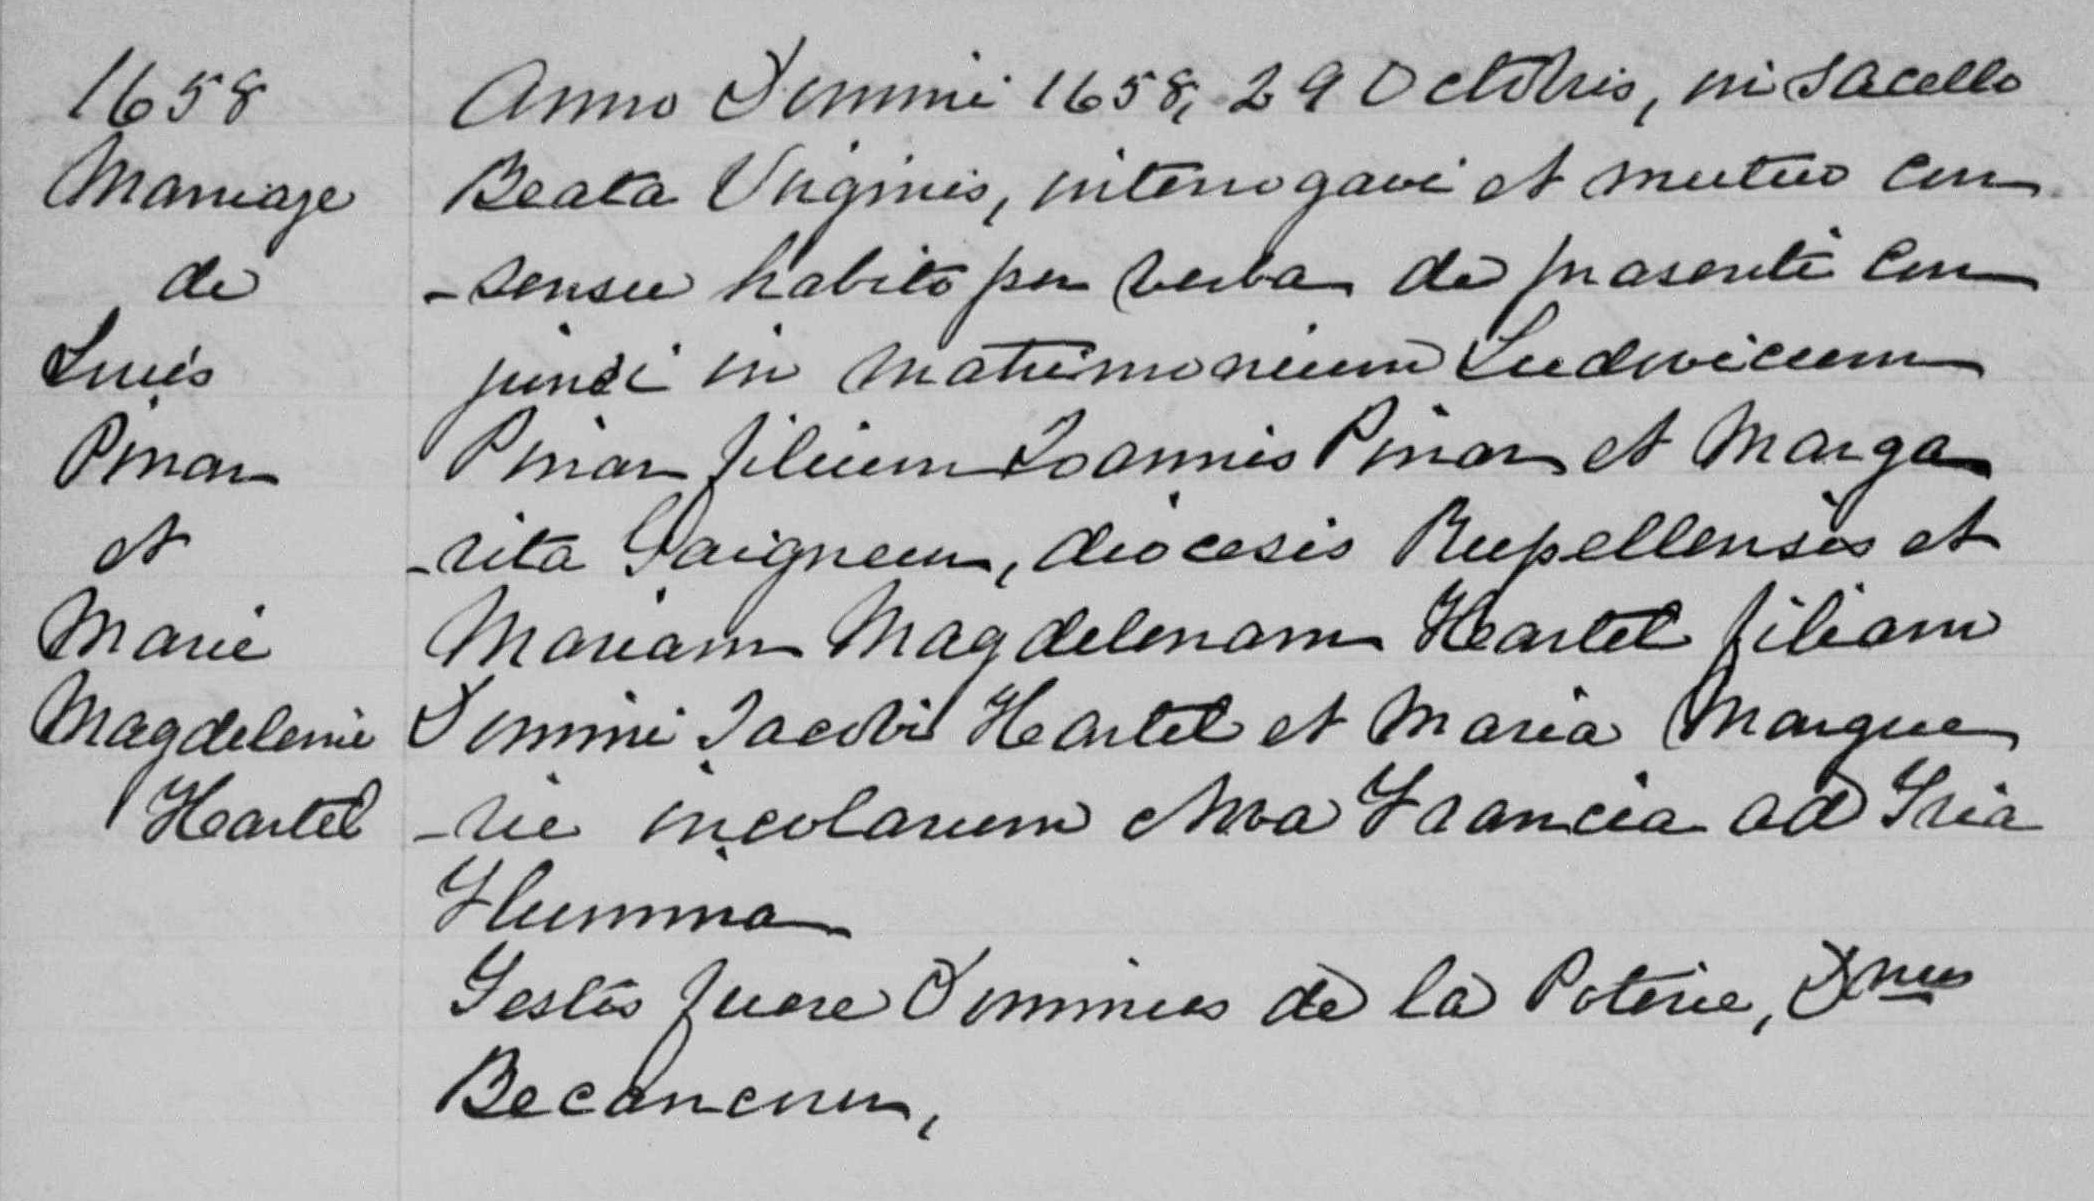 1658
Mariage
de
Louis
Pinar
et
Marie
Magdeleine
Heartel
Anno Domini 1658, 29 Octobris, in Sacello
Beata Virginis, interrogavi et mutuo con
-sensu habito per verba de prasenti con
junxi in matrimonium Ludovicum
Pinar filium Joannis Pinar et Marga
-rita Gaigneur, diocesis Rupellensis et
Mariam Magdelenam Heartel filiam
Domini Jacobi Heartel et Maria Margue
-rie incolarum Nova Francia ad Tria
Flumina
Testes fuere Dominus de la Poterie, Dnus
Becancour,